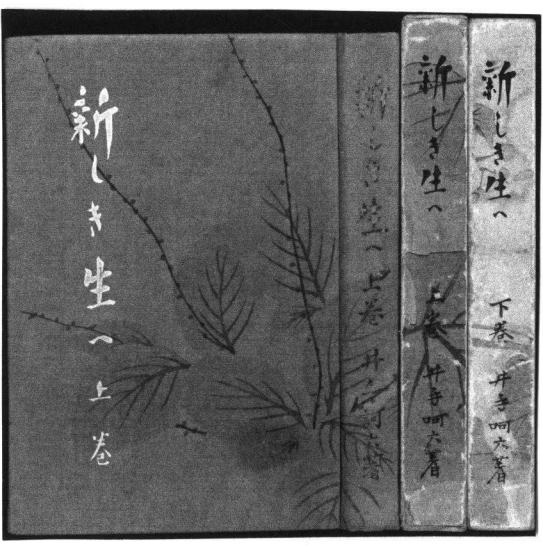 新しき生へ 上巻
新しき生へ 上巻 井手訶六著
新しき生へ 上巻 井手訶六著
新しき生へ 下巻 井手訶六著